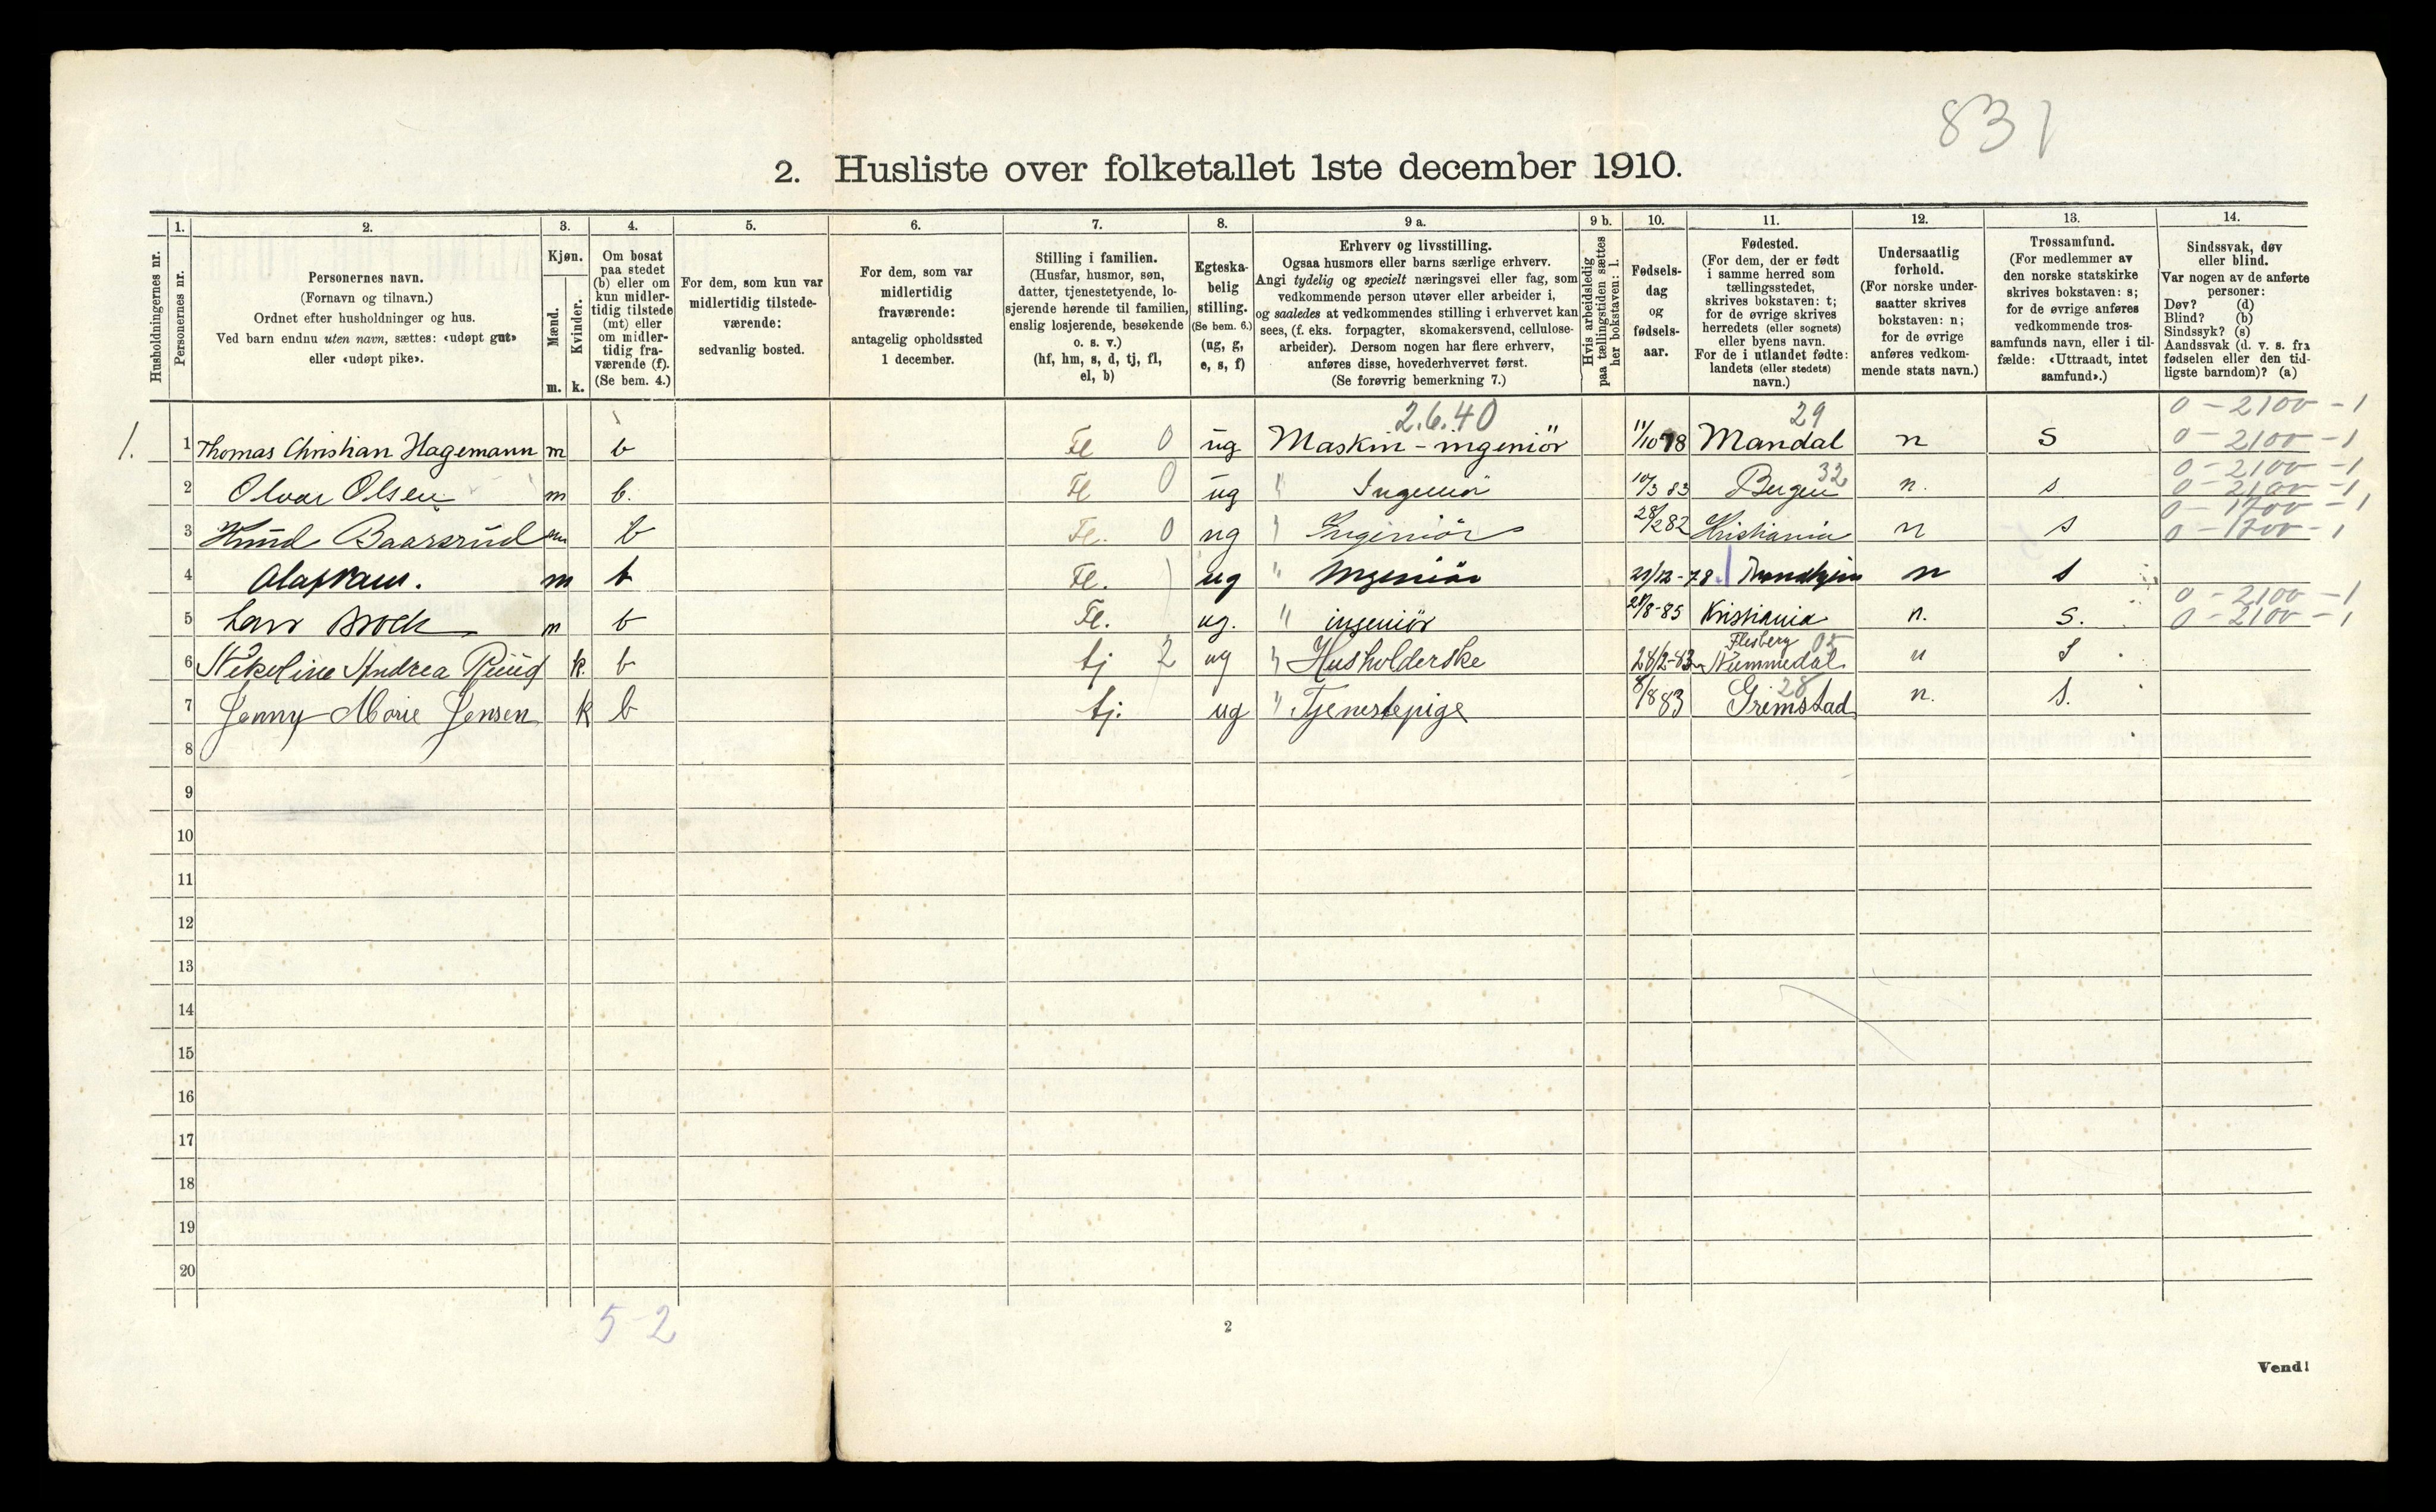 831
2. Husliste over folketallet 1ste december 1910.
Husholdningernes nr.
1. Personernes nr.
2. Personernes navn.
(Fornavn og tilnavn.)
Ordnet efter husholdninger og hus.
Ved barn endnu uten navn, sættes: «udøpt gut»
eller «udøpt pike».
3. Kjøn.
Mænd. m.
Kvinder. k.
4. Om bosat
paa stedet
(b) eller om
kun midler-
tidig tilstede
(mt) eller
om midler-
tidig fra-
værende (f).
(Se bem. 4.)
5. For dem, som kun var
midlertidig tilstede-
værende:
sedvanlig bosted.
6. For dem, som var
midlertidig
fraværende:
antagelig opholdssted
1 december.
7. Stilling i familien.
(Husfar, husmor, søn,
datter, tjenestetyende, lo-
sjerende hørende til familien,
enslig losjerende, besøkende
o. s. v.)
(hf, hm, s, d, tj, fl,
el, b)
8. Egteska-
belig
stilling.
(Se bem. 6.)
(ug, g,
e, s, f)
9 a. Erhverv og livsstilling.
Ogsaa husmors eller barns særlige erhverv.
Angi tydelig og specielt næringsvei eller fag, som
vedkommende person utøver eller arbeider i,
og saaledes at vedkommendes stilling i erhvervet kan
sees, (f. eks. forpagter, skomakersvend, cellulose-
arbeider). Dersom nogen har flere erhverv,
anføres disse, hovederhvervet først.
(Se forøvrig bemerkning 7.)
9 b. Hvis arbeidsledig
paa tællingstiden sættes
her bokstaven: l.
10. Fødsels-
dag
og
fødsels-
aar.
11. Fødested.
(For dem, der er født
i samme herred som
tællingsstedet,
skrives bokstaven: t;
for de øvrige skrives
herredets (eller sognets)
eller byens navn.
For de i utlandet fødte:
landets (eller stedets)
navn.)
12. Undersaatlig
forhold.
(For norske under-
saatter skrives
bokstaven: n;
for de øvrige
anføres vedkom-
mende stats navn.)
13. Trossamfund.
(For medlemmer av
den norske statskirke
skrives bokstaven: s;
for de øvrige anføres
vedkommende tros-
samfunds navn, eller i til-
fælde: «Uttraadt, intet
samfund».)
14. Sindssvak, døv
eller blind.
Var nogen av de anførte
personer:
Døv? (d)
Blind? (b)
Sindssyk? (s)
Aandssvak (d. v. s. fra
fødselen eller den tid-
ligste barndom)? (a)
2.6.40 29 0 - 2100 - 1
1. 1 Thomas Christian Hagemann m b Fl 0 ug Maskin-ingeniör 11/10 78 Mandal n S 0 - 2100 - 1
0 - 2100 - 1
2 Olvar Olsen m b. Fl 0 ug " Ingeniör 10/3 83 Bergen 32 n. s 0 - 2100 - 1
0 - 1700 - 1
3 Knud Baarsrud m b Fl. 0 ug " Ingeniör 28/2 82 Kristiania n s 0 - 1700 - 1
4 Olaf m b Fl. ug " Ingeniör 21/12-78 Trondhjem n s
0 - 2100 - 1
5 Lars Brock m b Fl. ug. " ingeniör 28/8-85 Kristiania n. s. 0 - 2100 - 1
Flesberg 05
6 Nekoline Andrea Ruud k. b tj 2 ug " Husholderske 28/2-83 Nummedal n S
28
7 Jenny Marie Jensen k b tj. ug " Tjenestepige 8/8 83 Grimstad n. s.
8
9
10
11
12
13
14
15
16
17
18
19
20
5 2
2
Vend!